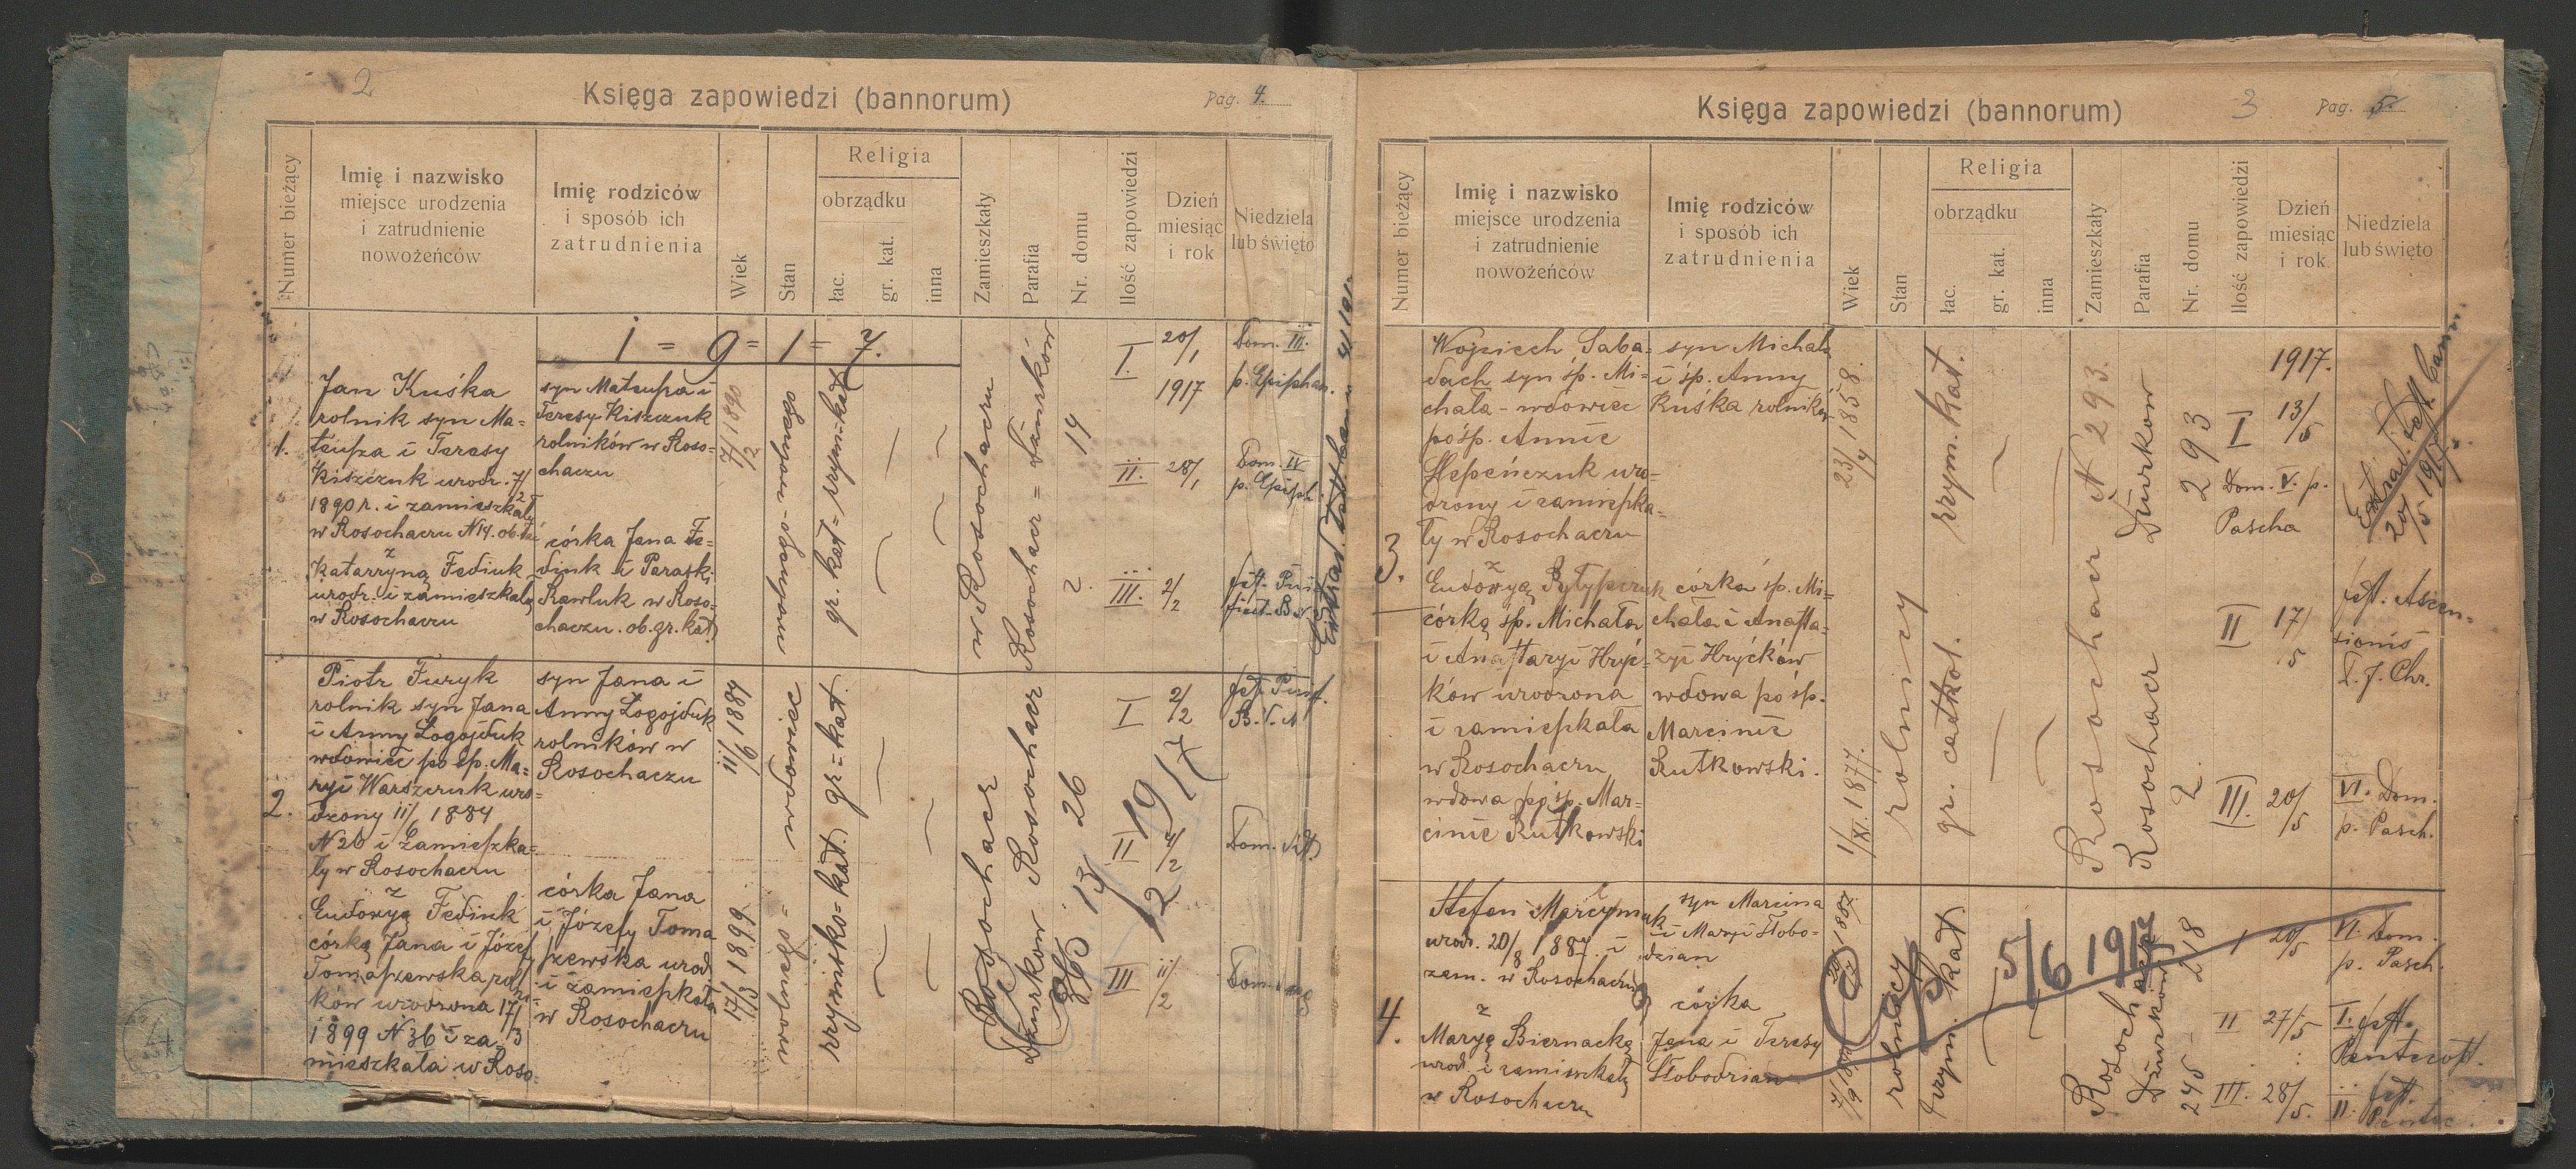 2
Księga zapowiedzi (bannorum)
Pag. 4.
Numer bieżący
Imię i nazwisko
miejsce urodzenia
i zatrudnienie
nowożeńców
Imię rodziców
i sposób ich
zatrudnienia
Wiek
Stan
Religia
obrządku
łac.
gr. kat.
inna
Zamieszkały
Parafia
Nr. domu
Ilość zapowiedzi
Dzień
miesiąc
i rok
Niedziela
lub święto
1 = 9 = 1 = 7.
1.
Jan Kuśka
rolnik syn Ma=
teusza i Teresy
Kiszczuk urodz. 7/2
1890 r. i zamieszkały
w Rosochaczu N 14.
z
Katarzyną Fediuk
urodz. i zamieszkałą
w Rosochaczu
syn Mateusza i
Teresy Kiszczuk
rolników w Roso=
chaczu
córka Jana Fe=
diuk i Paraski
Rawluk w Roso=
chaczu. ob. gr. kat.
7/2 1890
gr. kat = rzym. kat
w Rosochaczu
Rosochacz = Dżurków
14
2
I. 20/1 1917
Dom. III.
p. Epiphan.
II. 28/1
Dom. IV
p. Epiph.
III. 2/2
fest. Puri
ficat. B. V.
2.
Piotr Furyk
rolnik syn Jana
i Anny Łogojduk
wdowiec po śp. Ma=
ryi Warszczuk uro=
dzony 11/6 1884
N 26 i zamieszka=
ły w Rosochaczu
z
Eudoxyą Fediuk
córką Jana i Józef
Tomaszewska rol
ków urodzona 17/3
1899 N 36 i za
mieszkała w Roso
syn Jana i
Anny Łogojduk
rolników w
Rosochaczu
córka Jana
i Józefy Toma
szewska urod
i zamieszkała
w Rosochaczu
11/6 1884
17/3 1899
wolnego = wdowiec
rzymsko = kat. gr = kat.
Rosochacz
Dżurków Rosochacz
36 26
13/2 1917
I 2/2
fest. Purif.
B. V. M
II 4/2
III 11/2
3
Księga zapowiedzi (bannorum)
Pag. 5.
Numer bieżący
Imię i nazwisko
miejsce urodzenia
i zatrudnienie
nowożeńców
Imię rodziców
i sposób ich
zatrudnienia
Wiek
Stan
Religia
obrządku
łac.
gr. kat.
inna
Zamieszkały
Parafia
Nr. domu
Ilość zapowiedzi
Dzień
miesiąc
i rok
Niedziela
lub święto
3.
Wojciech Saba=
dach syn śp. Mi=
chała - wdowiec
po śp. Annie
Stepeńczuk uro=
dzony i zamieszka=
ły w Rosochaczu
z
Eudoxyą Pyłypczuk
córką śp. Michała
i Anastazyi Hryć=
ków urodzona
i zamieszkała
w Rosochaczu
wdowa po śp. Mar=
cinie Rutkowski
syn Michała
i śp. Anny
Kuśka rolników
córka śp. Mi=
chała i Anasta=
zyi Hryćków
wdowa po śp.
Marcinie
Rutkowski.
23/4 1858.
1/XI. 1877.
rolnicy
rzym. kat.
gr. cathol.
Rosochacz N 293.
Rosochacz Dżurków
2. 293
1917.
I 13/5
Dom. V. p.
Pascha
II 17/5
fest. Ascen=
sionis
D. J. Chr.
III. 20/5
VI. Dom.
p. Pasch.
Extrad. test. bann.
20/5 1917.
4.
Stefan Marcyniuk
urod. 20/8 1887 i
zam. w Rosochaczu
z
Maryą Biernacką
urod. i zamieszkałą
w Rosochaczu
syn Marcina
i Maryi Słobo=
dzian
córka
Jana i Teresy
Słobodzian
rolnicy
rzym. kat
5/6 1917
Rosochacz
Dżurków
246 - 218
I 20/5
VI. Dom.
p. Pasch.
II 27/5
I. fest.
Pentecost.
III. 28/5.
II. fest.
Pentec.